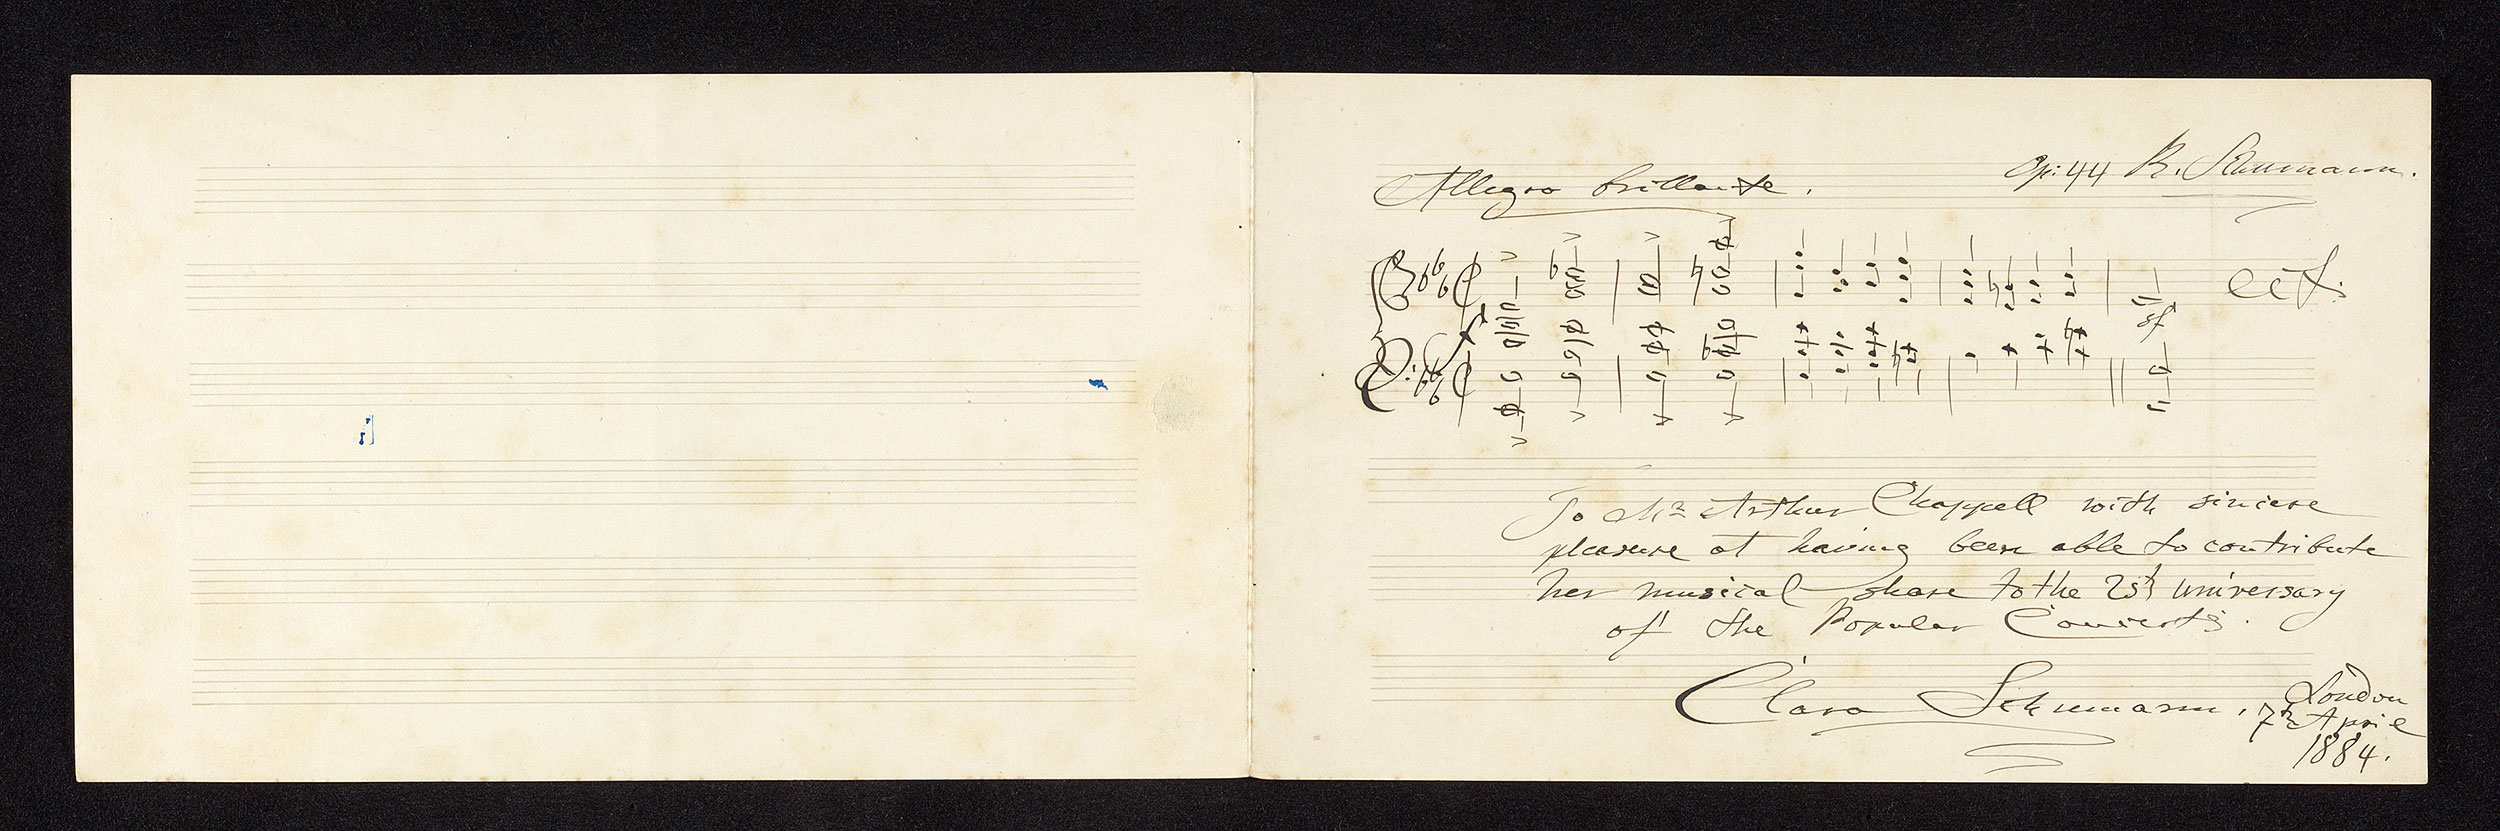 Allegro brillante.
Op: 44 R. Schumann.
f
sf
ect.
To Mr Arthur Chappell with sincere
pleasure at having been able to contribute
her musical share to the 25th universary
of the Popular Concerts.
Clara Schumann.
London
7th April
1884.